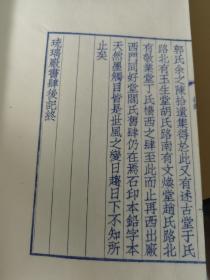 郭氏余之陳拾遺集得於此又有述古堂于氏
路北有玉生堂胡氏路南有文煥堂趙氏路北
有敬業堂丁氏樓西之肆至此而止再西出廠
西門同好堂閻氏書肆仍在焉石印本鉛字本
天然墨觸目皆是世風之變日趨日下不知所
止矣
琉璃廠書肆後記終